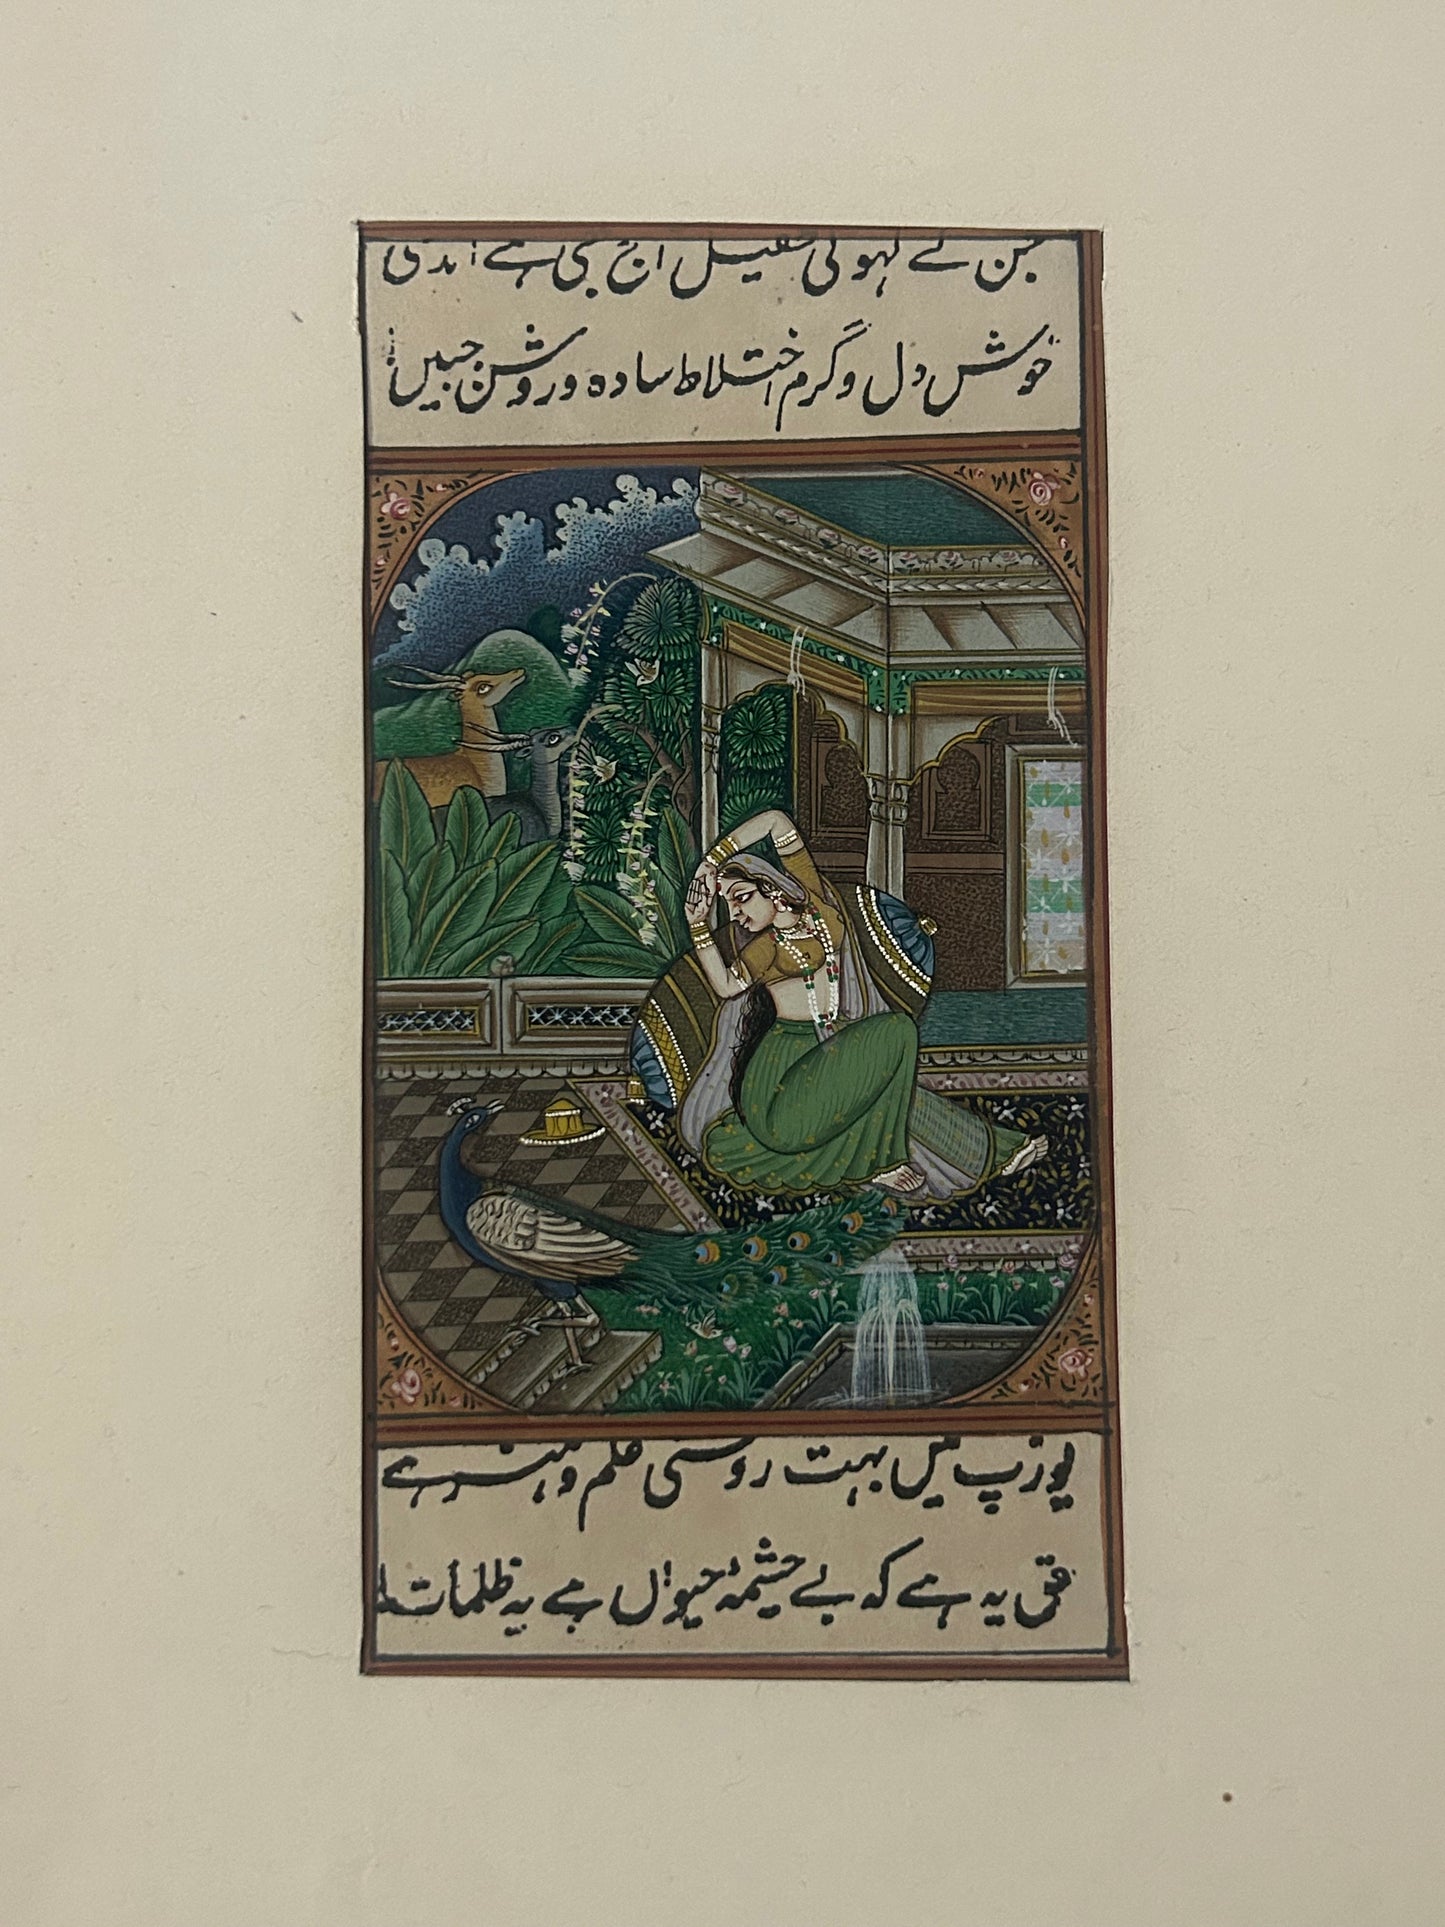 جن کے لہو کی طفیل آج بھی ہے
خوش دل و گرم اختلاط سادہ و روشن جبیں
یورپ میں بہت روشنی علم و ہنر ہے
یہ ہے کہ بے چشمۂ حیواں ہے یہ ظلمات